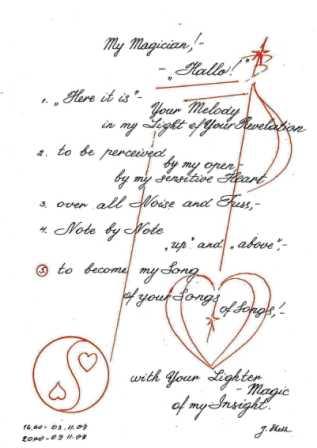 My Magician,!-
- „Hallo!"
1. „Here it is"-
Your Melody
in my Light of Your Revelation
2. to be perceived
by my open,-
by my sensitive Heart
3. over all Noise and Fuss,-
4. Note by Note
„up" and „above",-
5 to become my Song
of your Songs
of Songs,!-
with Your Lighter
- Magic
of my Insight.
03.11.09
2000 - 03.11.09